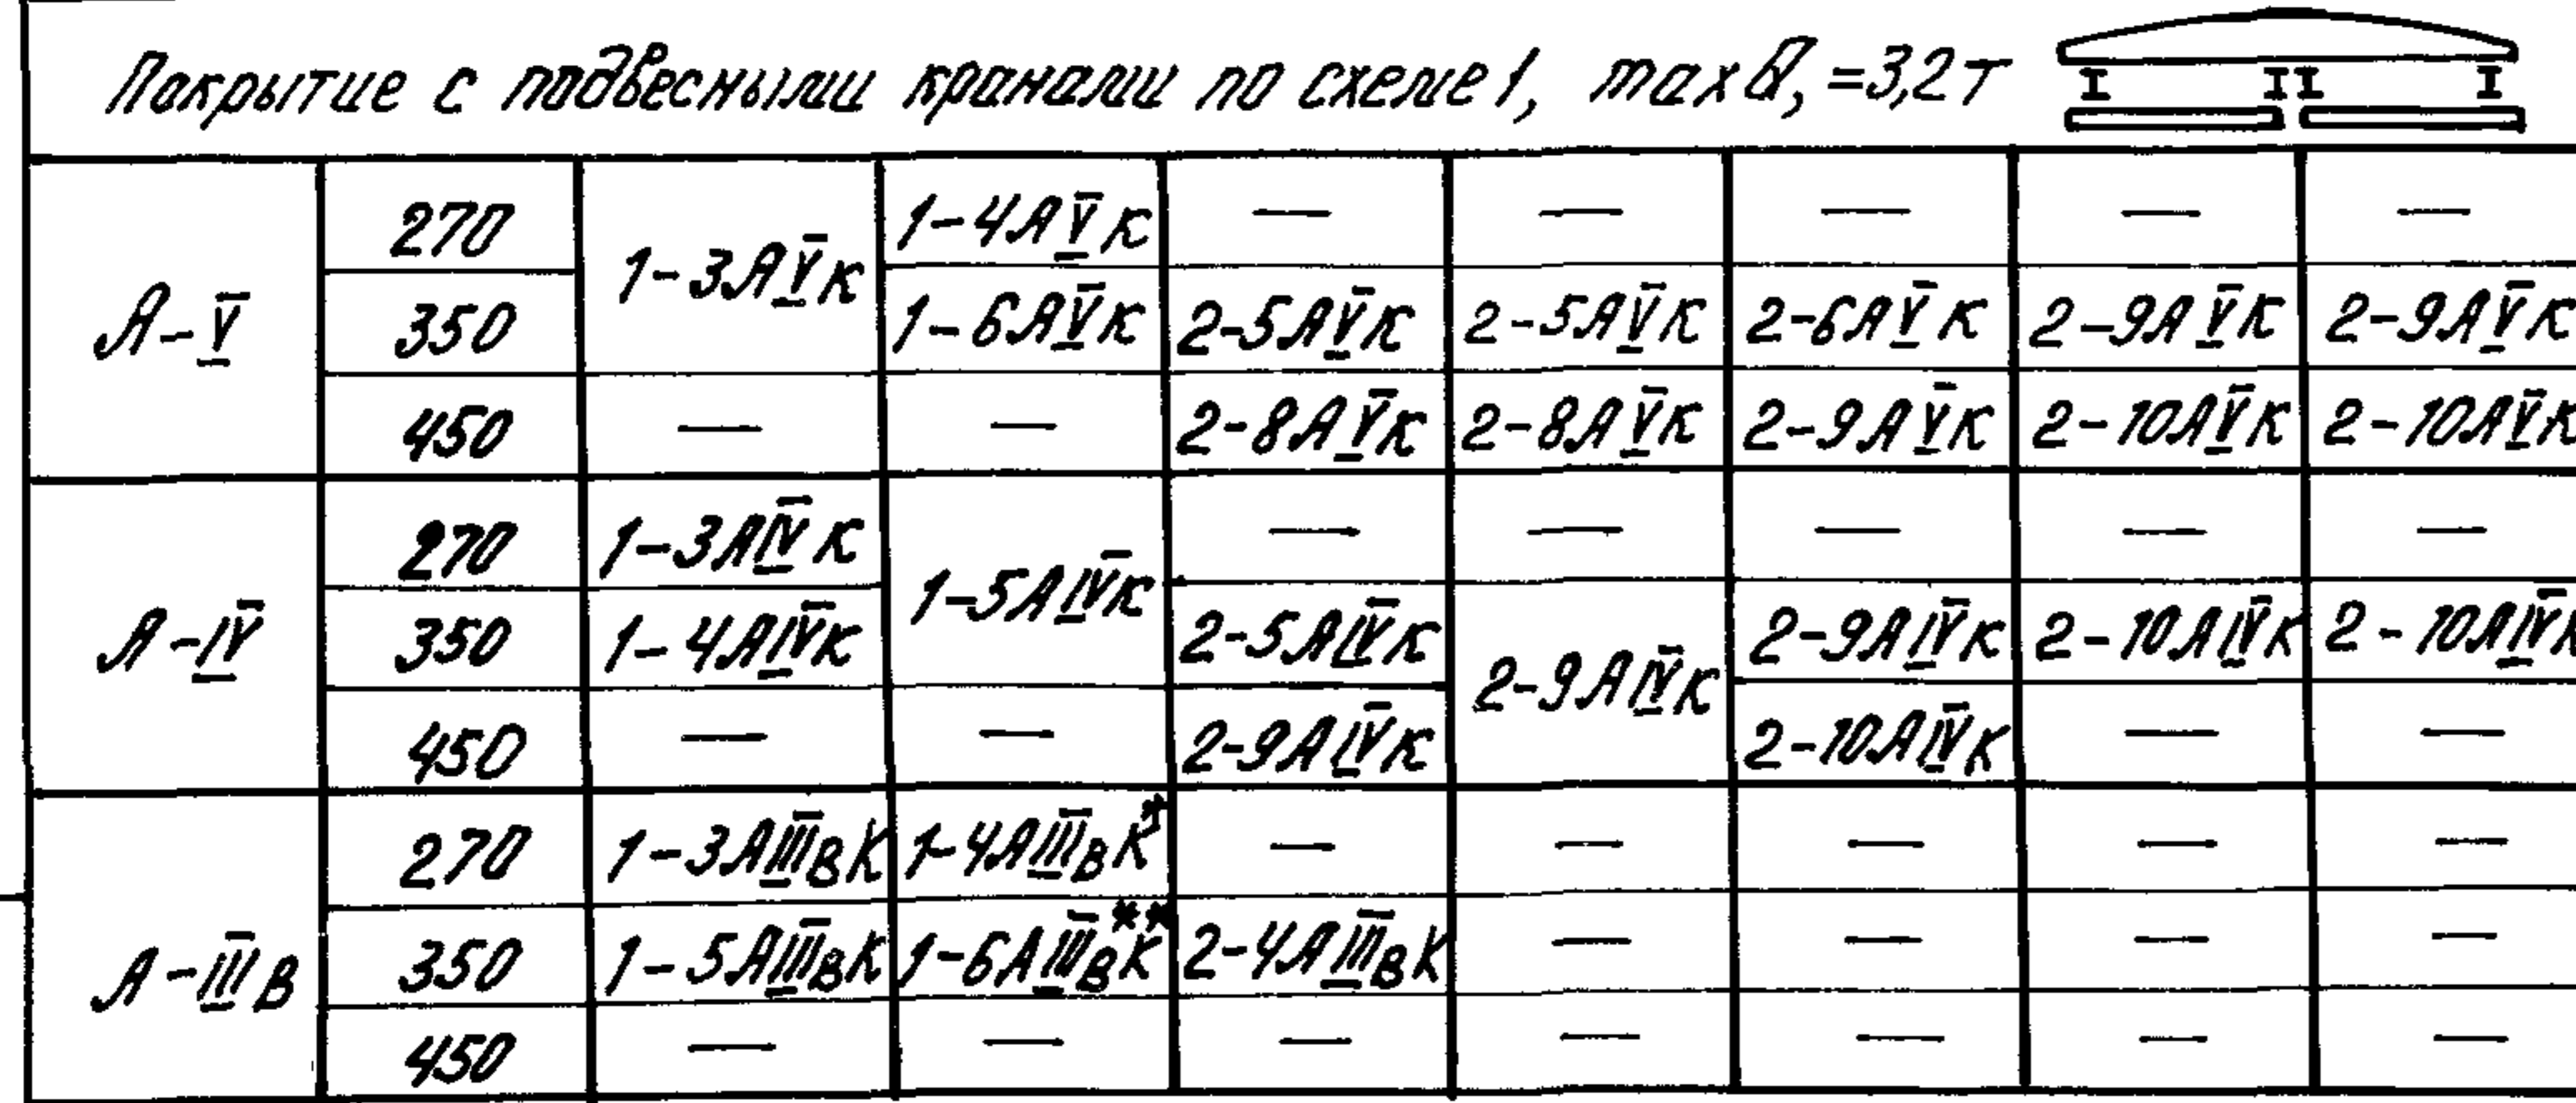 Покрытие с подвесными кранами по схеме 1, max Q₁ =3,2т
I II I
А-V 270 1-3АVк 1-4АVк — — — — —
350 1-6АVк 2-5АVк 2-5АVк 2-6АVк 2-9АVк 2-9АVк
450 — — 2-8АVк 2-8АVк 2-9АVк 2-10АVк 2-10АVк
А-IV 270 1-3АIVк 1-5АIVк — — — — —
350 1-4АIVк 2-5АIVк 2-9АIVк 2-9АIVк 2-10АIVк 2-10АIVк
450 — — 2-9АIVк 2-10АIVк — —
А-IIIв 270 1-3АIIIвК 1-4АIIIвК* — — — — —
350 1-5АIIIвК 1-6АIIIвК** 2-4АIIIвК — — — —
450 — — — — — — —